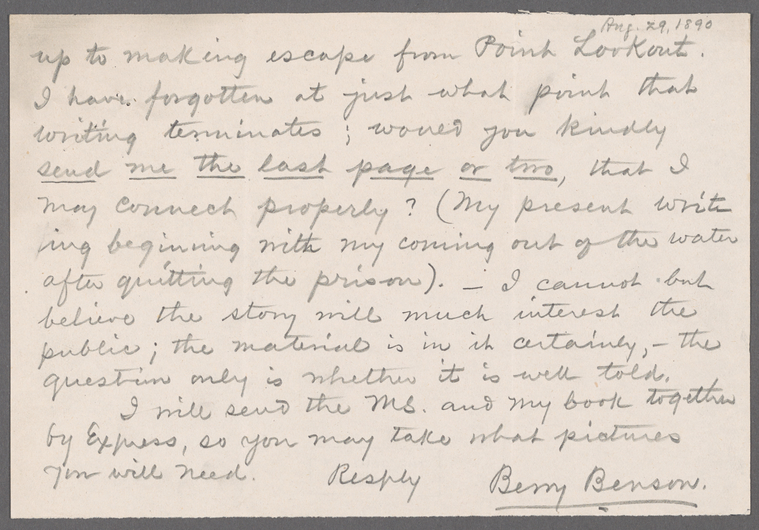 Aug. 29, 1890
up to making escape from Point Lookout.
I have forgotten at just what point that
writing terminates; would you kindly
send me the last page or two, that I
may connect properly? (My present writ
ing beginning with my coming out of the water
after quitting the prison). – I cannot but
believe the story will much interest the
public; the material is in it certainly, – the
question only is whether it is well told.
I will send the MS. and my book together
by Express, so you may take what pictures
you will need. Resply Berry Benson.